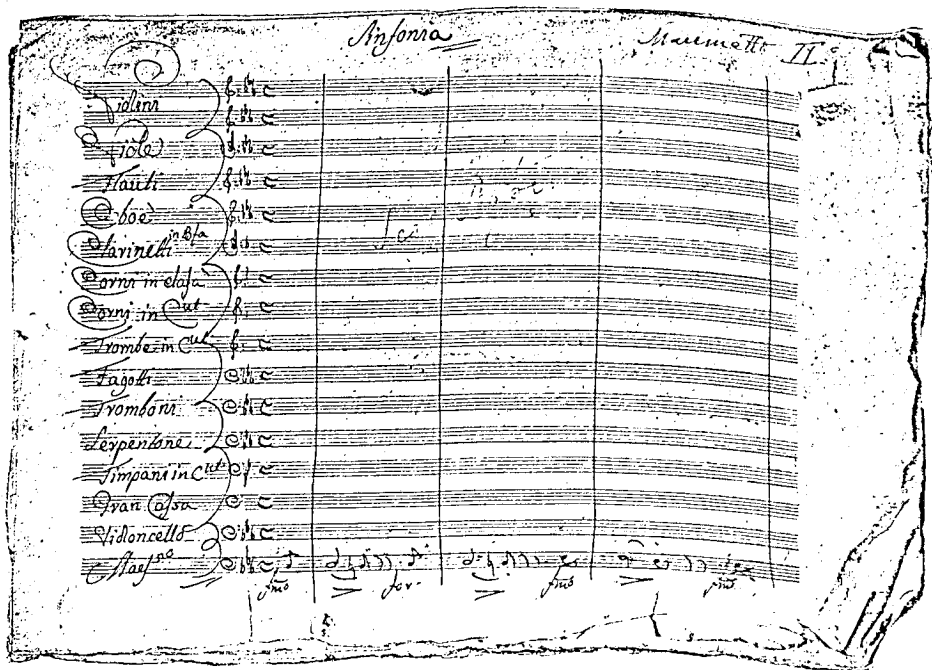 Sinfonia
Maometto II
Violini
Viole
Flauti
Oboè
Clarinetti in Bfa
Corni in elafa
Corni in Cut
Trombe in Cut
Fagotti
Tromboni
Serpentone
Timpani in Cut
Gran Cassa
Violoncello
fmo for. fmo fmo